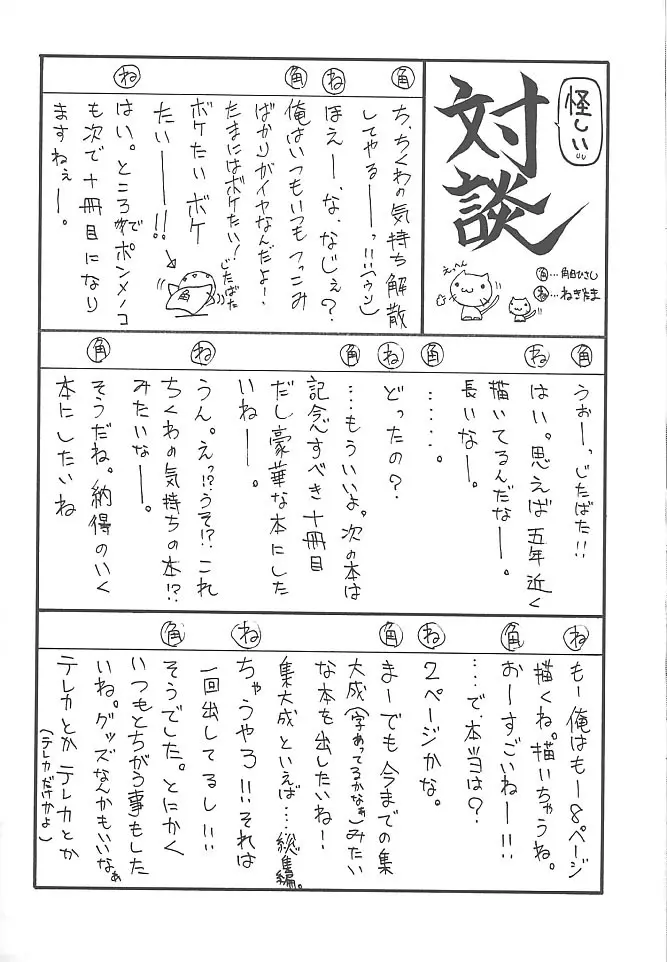 怪しい
対談
えっへん
角…角日ひさし
ね…ねぎたま
角
ち、ちくわの気持ち解散
してやるーっ!!(ウソ)
ね
ほえー、な、なじぇ？
角
俺はいつもいつもつっこみ
ばかりがイヤなんだよ！
たまにはボケたい！
じたばた
ボケたい ボケ
たいー!!
角
ね
はい。ところでポンメノコ
も次で十冊目になり
ますねぇー。
角
うぉーっじたばた!!
ね
はい。思えば五年近く
描いてるんだなー。
長いなー。
角
……。
ね
どったの？
角
…もういいよ。次の本は
記念すべき十冊目
だし豪華な本にした
いねー。
ね
うん。えっ!?うそ!?これ
ちくわの気持ちの本!?
みたいなー。
角
そうだね。納得のいく
本にしたいね
ね
もー俺はもー8ページ
描くね。描いちゃうね。
角
おーすごいねー!!
…で、本当は？
ね
2ページかな。
角
まーでも今までの集
大成(字あってるかなぁ)みたい
な本を出したいね！
集大成といえば…総集編。
ね
ちゃうやろ!!それは
一回出してるし!!
角
そうでした。とにかく
いつもとちがう事もした
いね。グッズなんかもいいなぁ
テレカとかテレカとか
(テレカだけかよ)